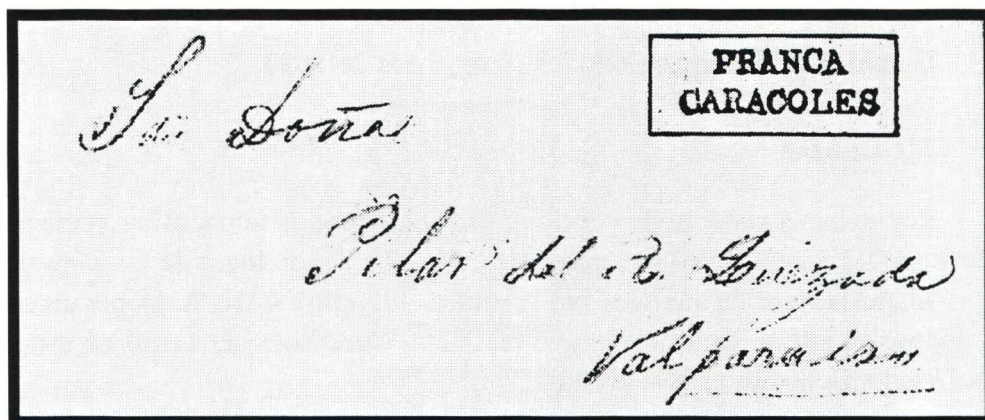 FRANCA
CARACOLES
Sra Doña
Pilar del R. Quezada
Valparaiso